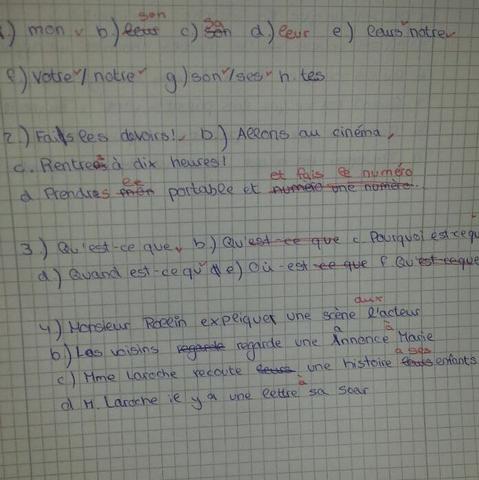 son sa
1.) mon b) leur c) son d) leur e) leurs notre
f.) votre / notre g) son / ses h. tes
2.) Fais les devoirs! b) Allons au cinéma
c. Rentrez à dix heures!
le et fais le numéro
d Prendres mon portable et numéro une numéro.
3.) Qu'est-ce que b) Qu'est-ce que c. Pourquoi est-ce qu
d) Quand est-ce qu' e) Où est-ce que f Qu'est-ceque
aux
4.) Monsieur Rollin expliquer une scène l'acteur
a à
b) Les voisins regarde regarde une Annonce Marie
à ses
c) Mme Laroche recoute leurs une histoire enfants
à
d M. Laroche il y a une lettre sa soar